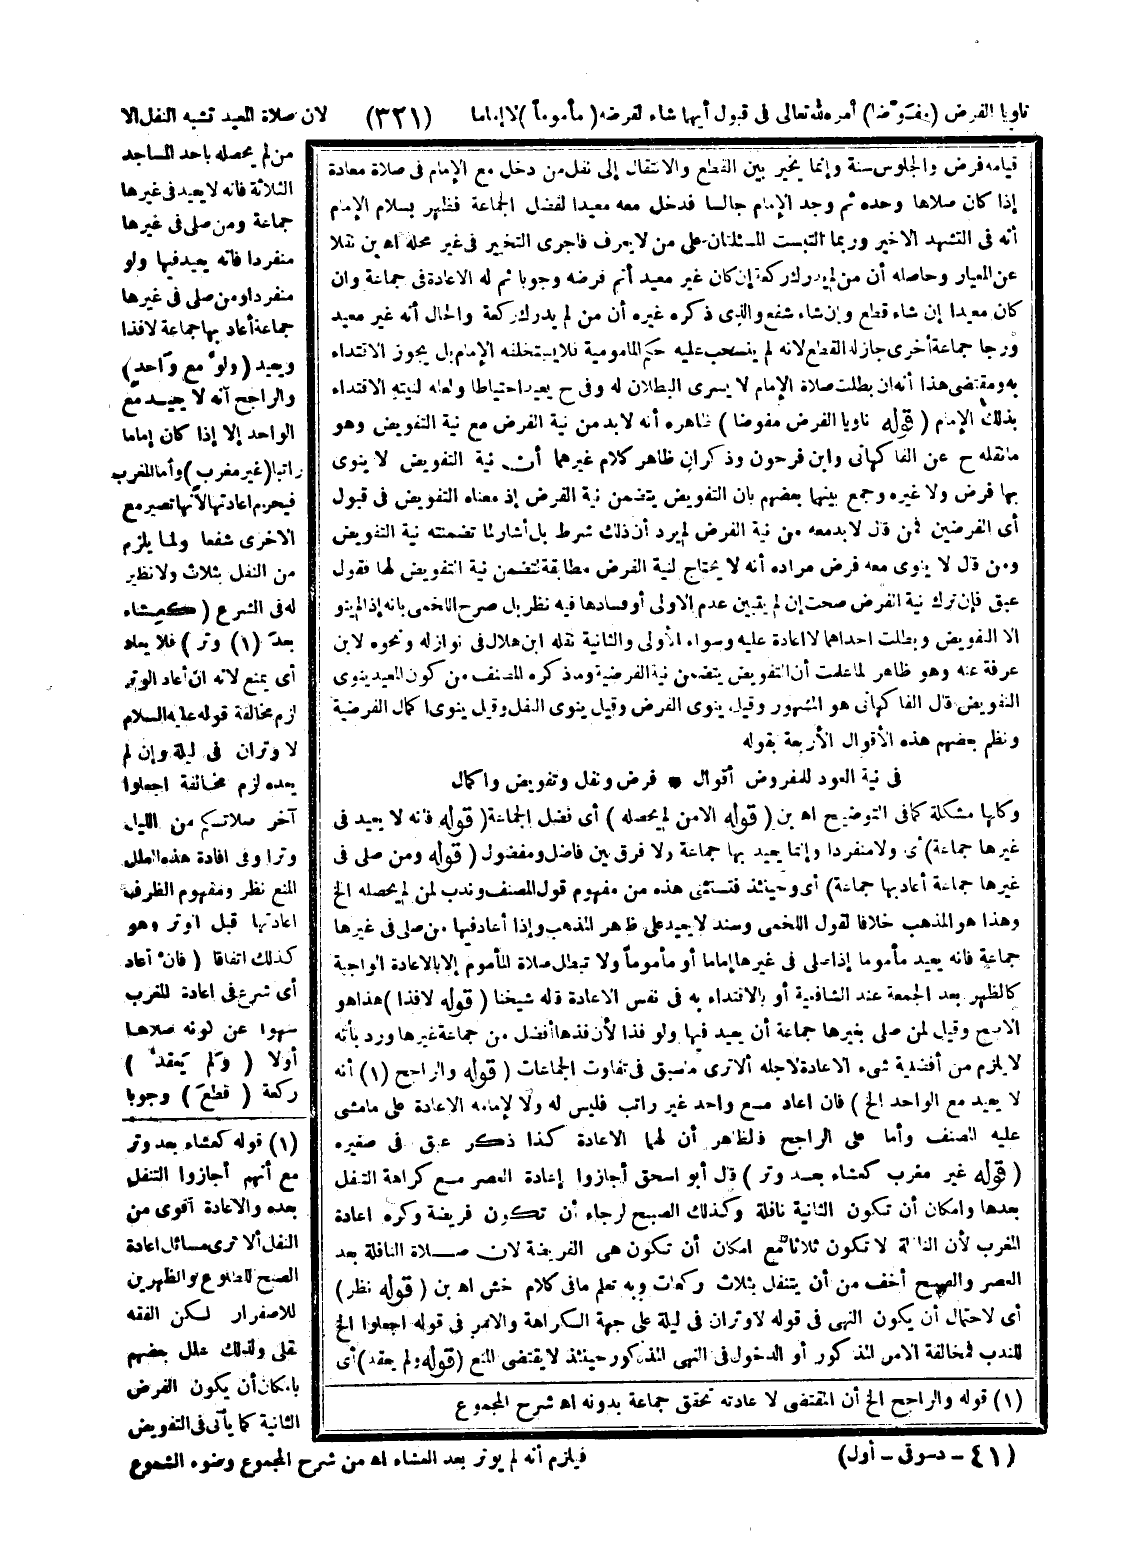 ناويا الفرض (مفوّضا) أمره لله تعالى فى قبول أيهما شاء لفرضه (مأموما) لا إماما (٣٢١) لان صلاة المعيد تشبه النفل الا
من لم يحصله باحد المساجد
الثلاثة فانه لا يعيد فى غيرها
جماعة ومن صلى فى غيرها
منفردا فانه يعيد فيها ولو
منفردا ومن صلى فى غيرها
جماعة أعاد بها جماعة لافذا
ويعيد (ولو مع واحد)
والراجح أنه لا يعيد مع
الواحد إلا إذا كان إماما
راتبا (غير مغرب) وأما المغرب
فيحرم اعادتها لأنها تصير مع
الاخرى شفعا ولما يلزم
من النفل بثلاث ولا نظير
له فى الشرع (كعشاء
بعد (١) وتر) فلا يعاد
أى يمنع لانه ان أعاد الوتر
لزم مخالفة قوله عليه السلام
لا وتران فى ليلة وإن لم
يعده لزم مخالفة اجعلوا
آخر صلاتكم من الليل
وترا وفى افادة هذه العلل
المنع نظر ومفهوم الظرف
اعادتها قبل الوتر وهو
كذلك اتفاقا (فان أعاد)
أى شرع فى اعادة المغرب
سهوا عن كونه صلاها
أولا (ولم يعقد)
ركعة (قطع) وجوبا
قيامه فرض والجلوس سنة وإنما يخير بين القطع والانتقال إلى نفل من دخل مع الإمام فى صلاة معادة
إذا كان صلاها وحده ثم وجد الإمام جالسا فدخل معه معيدا لفضل الجماعة فظهر بسلام الإمام
أنه فى التشهد الاخير وربما التبست المسئلتان على من لا يعرف فاجرى التخيير فى غير محله اه بن نقلا
عن المعيار وحاصله أن من لم يدرك ركعة إن كان غير معيد أتم فرضه وجوبا ثم له الاعادة فى جماعة وان
كان معيدا إن شاء قطع وإن شاء شفع والذى ذكره غيره أن من لم يدرك ركعة والحال أنه غير معيد
ورجا جماعة أخرى جاز له القطع لانه لم ينسحب عليه حكم المامومية فلا يستخلفه الإمام بل يجوز الاقتداء
به ومقتضى هذا أنه ان بطلت صلاة الإمام لا يسرى البطلان له وفى ح يعيد احتياطا ولعله لنيته الاقتداء
بذلك الإمام (قوله ناويا الفرض مفوضا) ظاهره أنه لابد من نية الفرض مع نية التفويض وهو
ما نقله ح عن الفاكهانى وابن فرحون وذكر ان ظاهر كلام غيرهما أن نية التفويض لا ينوى
بها فرض ولا غيره وجمع بينهما بعضهم بان التفويض يتضمن نية الفرض إذ معناه التفويض فى قبول
أى الفرضين فمن قال لابد معه من نية الفرض لم يرد أن ذلك شرط بل أشار لما تضمنته نية التفويض
ومن قال لا ينوى معه فرض مراده أنه لا يحتاج لنية الفرض مطابقة لتضمن نية التفويض لها فقول
عبق فإن ترك نية الفرض صحت إن لم يتبين عدم الاولى أو فسادها فيه نظر بل صرح اللخمى بانه إذا لم ينو
الا التفويض وبطلت احداهما لا اعادة عليه وسواء الأولى والثانية نقله ابن هلال فى نوازله ونحوه لابن
عرفة عنه وهو ظاهر لما علمت أن التفويض يتضمن نية الفرضية وما ذكره المصنف من كون المعيد ينوى
التفويض قال الفاكهانى هو المشهور وقيل ينوى الفرض وقيل ينوى النفل وقيل ينوى اكمال الفرضية
ونظم بعضهم هذه الأقوال الأربعة بقوله
فى نية العود للمفروض أقوال * فرض ونفل وتفويض واكمال
وكلها مشكلة كما فى التوضيح اه بن (قوله الا من لم يحصله) أى فضل الجماعة (قوله فانه لا يعيد فى
غيرها جماعة) أى ولا منفردا وإنما يعيد بها جماعة ولا فرق بين فاضل ومفضول (قوله ومن صلى فى
غيرها جماعة أعاد بها جماعة) أى وحينئذ فتستثنى هذه من مفهوم قول المصنف وندب لمن لم يحصله الخ
وهذا هو المذهب خلافا لقول اللخمى وسند لا يعيد على ظاهر المذهب وإذا أعاد فيها من صلى فى غيرها
جماعة فانه يعيد مأموما إذا صلى فى غيرها إماما أو مأموما ولا تبطل صلاة المأموم إلا بالاعادة الواجبة
كالظهر بعد الجمعة عند الشافعية أو بالاقتداء به فى نفس الاعادة قاله شيخنا (قوله لا فذا) هذا هو
الاصح وقيل لمن صلى بغيرها جماعة أن يعيد فيها ولو فذا لأن فذها أفضل من جماعة غيرها ورد بأنه
لا يلزم من أفضلية شىء الاعادة لاجله ألا ترى ما سبق فى تفاوت الجماعات (قوله والراجح (١) أنه
لا يعيد مع الواحد الخ) فان اعاد مع واحد غير راتب فليس له ولا لإمامه الاعادة على ما مشى
عليه المصنف وأما على الراجح فالظاهر أن لهما الاعادة كذا ذكر عبق فى صغيره
(قوله غير مغرب كعشاء بعد وتر) قال أبو اسحق أجازوا إعادة العصر مع كراهة التنفل
بعدها وامكان أن تكون الثانية نافلة وكذلك الصبح لرجاء أن تكون فريضة وكره اعادة
المغرب لأن النافلة لا تكون ثلاثا مع امكان أن تكون هى الفريضة لان صلاة النافلة بعد
العصر والصبح أخف من أن يتنفل بثلاث ركعات وبه تعلم ما فى كلام خش اه بن (قوله نظر)
أى لاحتمال أن يكون النهى فى قوله لا وتران فى ليلة على جهة الكراهة والامر فى قوله اجعلوا الخ
للندب فمخالفة الامر المذكور أو الدخول فى النهى المذكور حينئذ لا يقتضى المنع (قوله ولم يعقد) أى
(١) قوله والراجح الخ أن المقتضى لا عادته تحقق جماعة بدونه اه شرح المجموع
(١) قوله كعشاء بعد وتر
مع أنهم أجازوا التنفل
بعده والاعادة أقوى من
النفل ألا ترى مسائل اعادة
الصبح للطلوع والظهرين
للاصفرار لكن الفقه
نقلى ولذلك علل بعضهم
بامكان أن يكون الفرض
الثانية كما يأتى فى التفويض
فيلزم أنه لم يوتر بعد العشاء اه من شرح المجموع وضوء الشموع
(٤١ - دسوقى - أول)